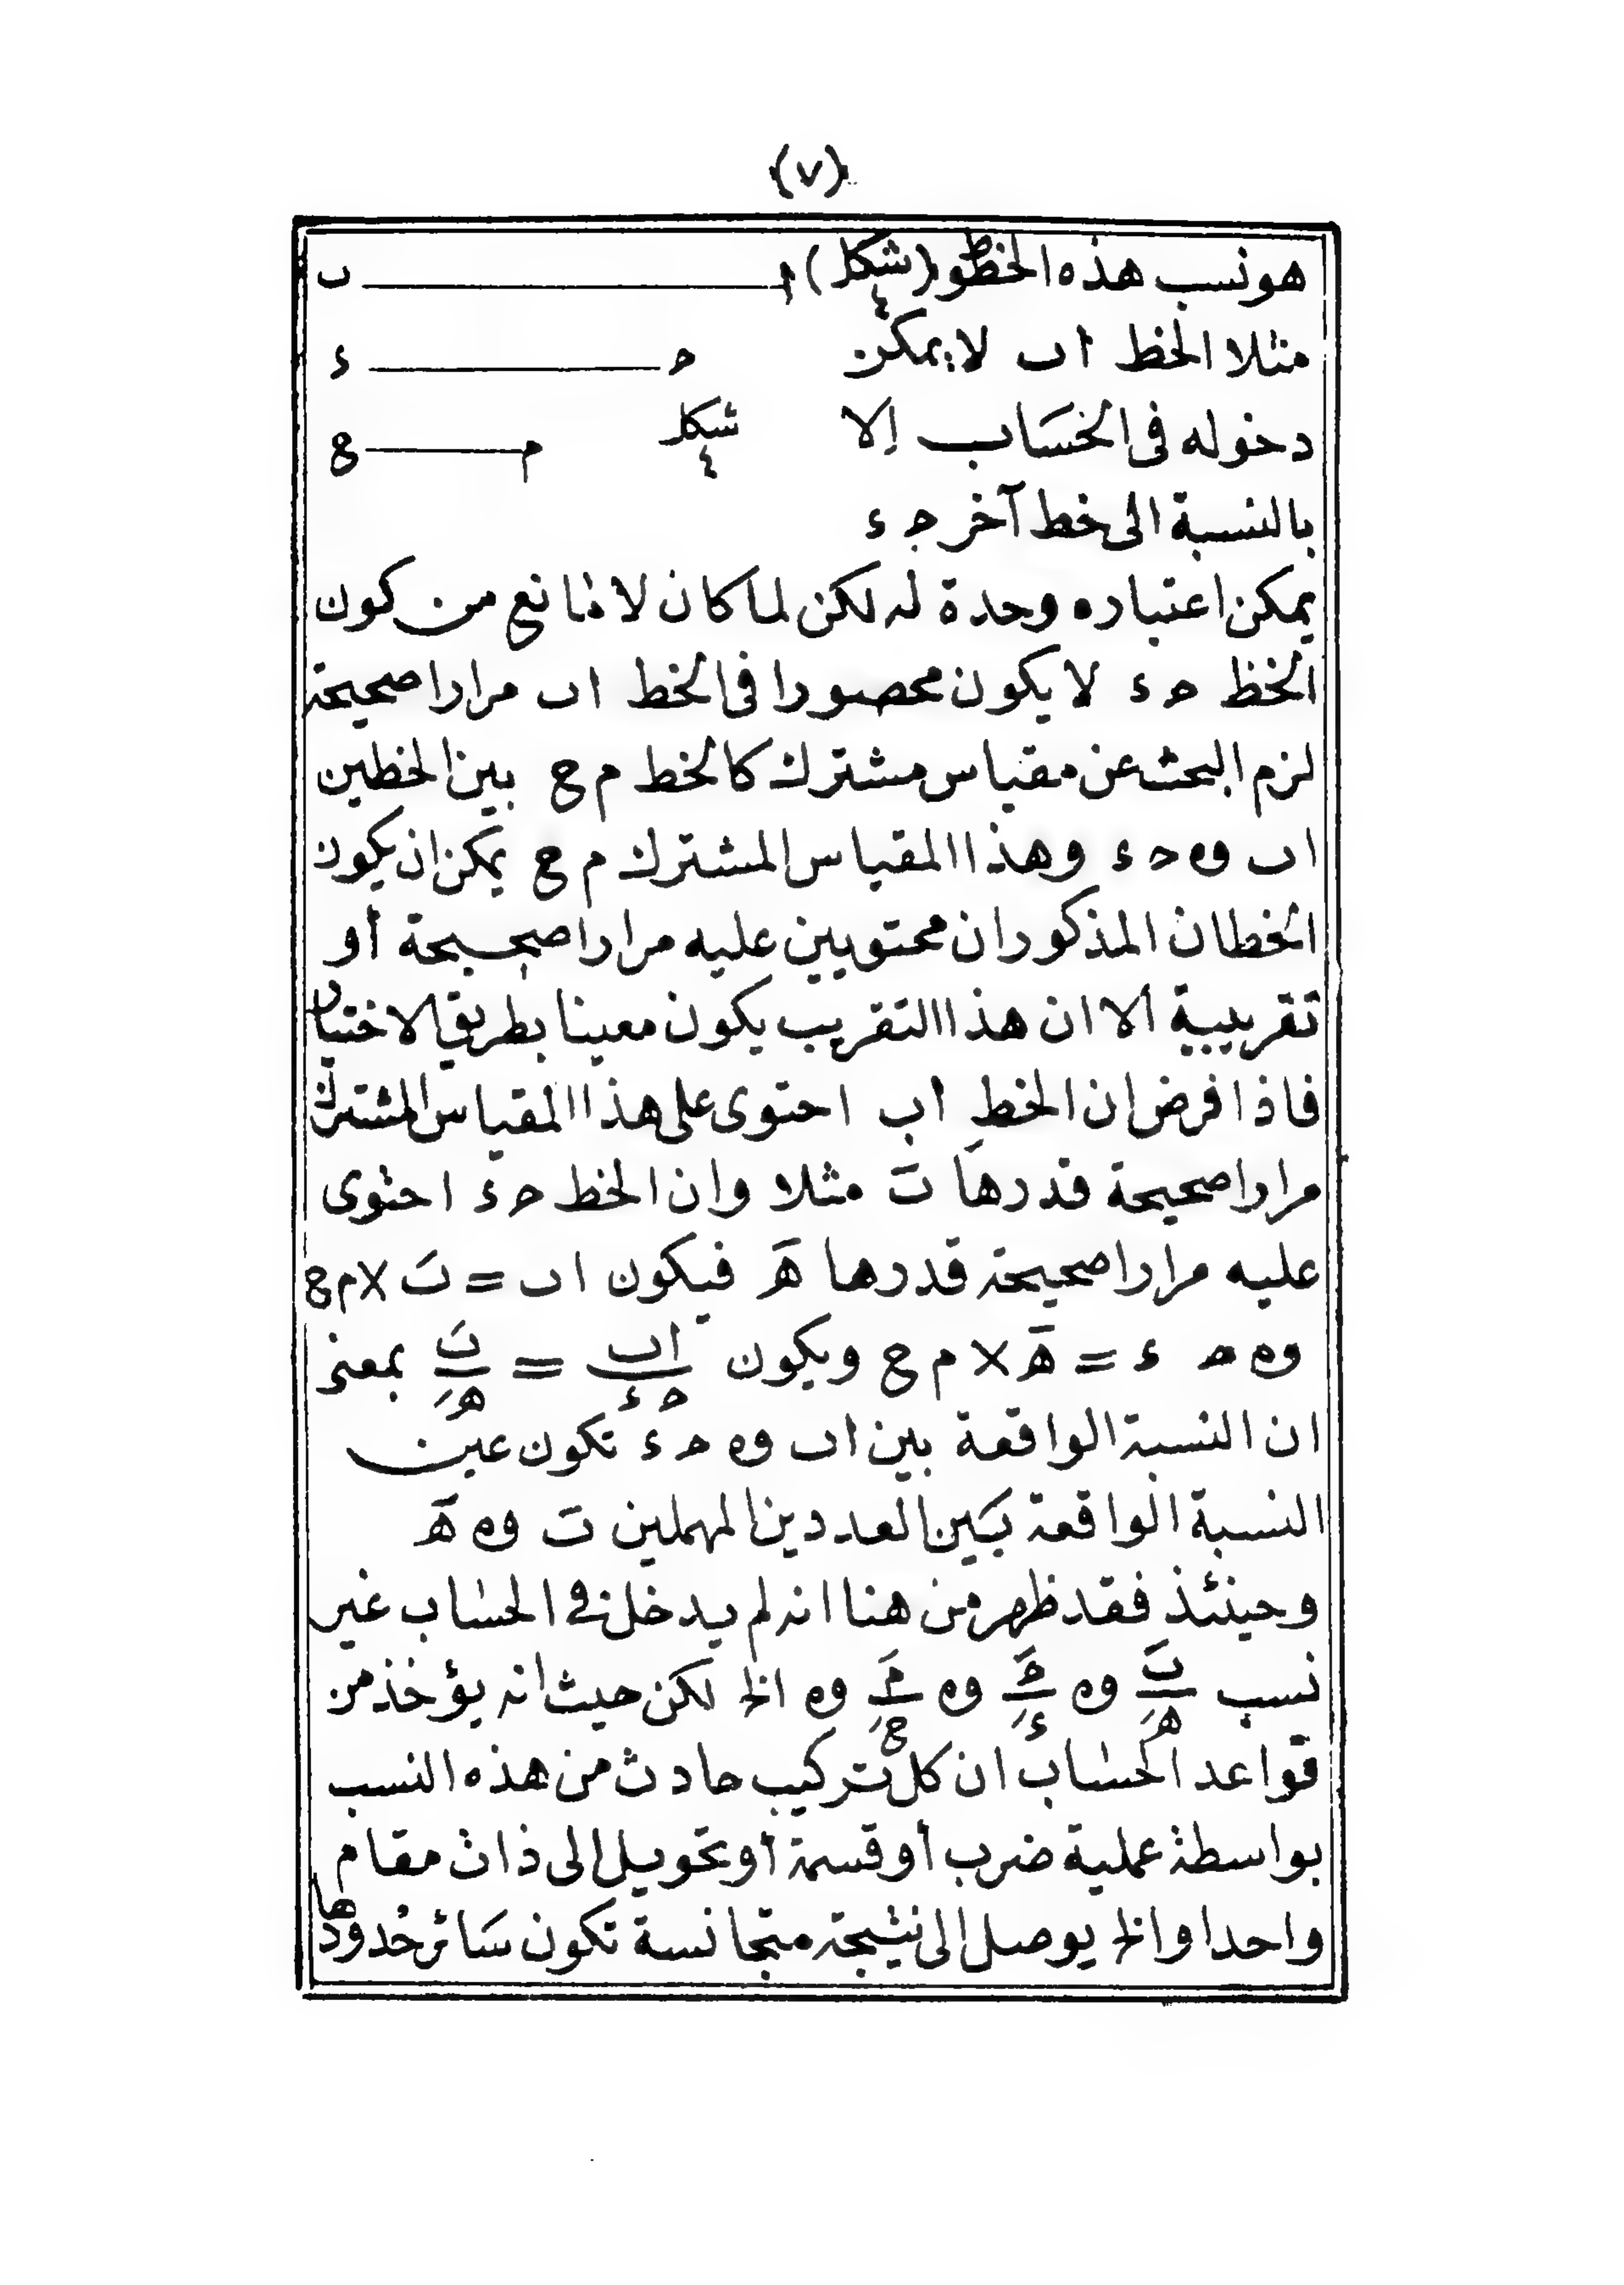 (٧)
هو نسب هذه الخطوط (شكل ٤) ا ب
مثلا الخط اب لا يمكن ح ء
دخوله فى الحسَاب إلا شكل ٤ م ع
بالنسبة الى خط آخر ج ء
يمكن اعتباره وحدة له لكن لما كان لا مانع من كون
الخط ح ء لا يكون محصورا فى الخط اب مرارا صحيحة
لزم البحث عن مقياس مشترك كالخط م ع بين الخطين
اب وه ح ء وهذا المقياس المشترك م ع يمكن ان يكون
الخطان المذكوران محتويين عليه مرارا صحيحة أو
تقريبية الا ان هذا التقريب يكون معينا بطريق الاختيار
فاذا فرض ان الخط اب احتوى على هذا المقياس المشترك
مرارا صحيحة قدرها تَ مثلا وان الخط ح ء احتوى
عليه مرارا صحيحة قدرها هَ فيكون اب = تَ × م ع
وه ح ء = هَ × م ع ويكون اب/ح ء = تَ/هَ بمعنى
ان النسبة الواقعة بين اب وه ح ء تكون عين
النسبة الواقعة بَين العددين المهملين تَ وه هَ
وحينئذ فقد ظهر من هنا انه لم يدخل فى الحساب غير
نسب تَ/هَ وه حَ/ءَ وه مَ/عَ وه الخ لكن حيث انه يؤخذ من
قواعد الحساب ان كل تركيب حادث من هذه النسب
بواسطة عملية ضرب أو قسمة أو تحويل الى ذات مقام
واحد او الخ يوصل الى نتيجة متجانسة تكون سَائر حُدودها